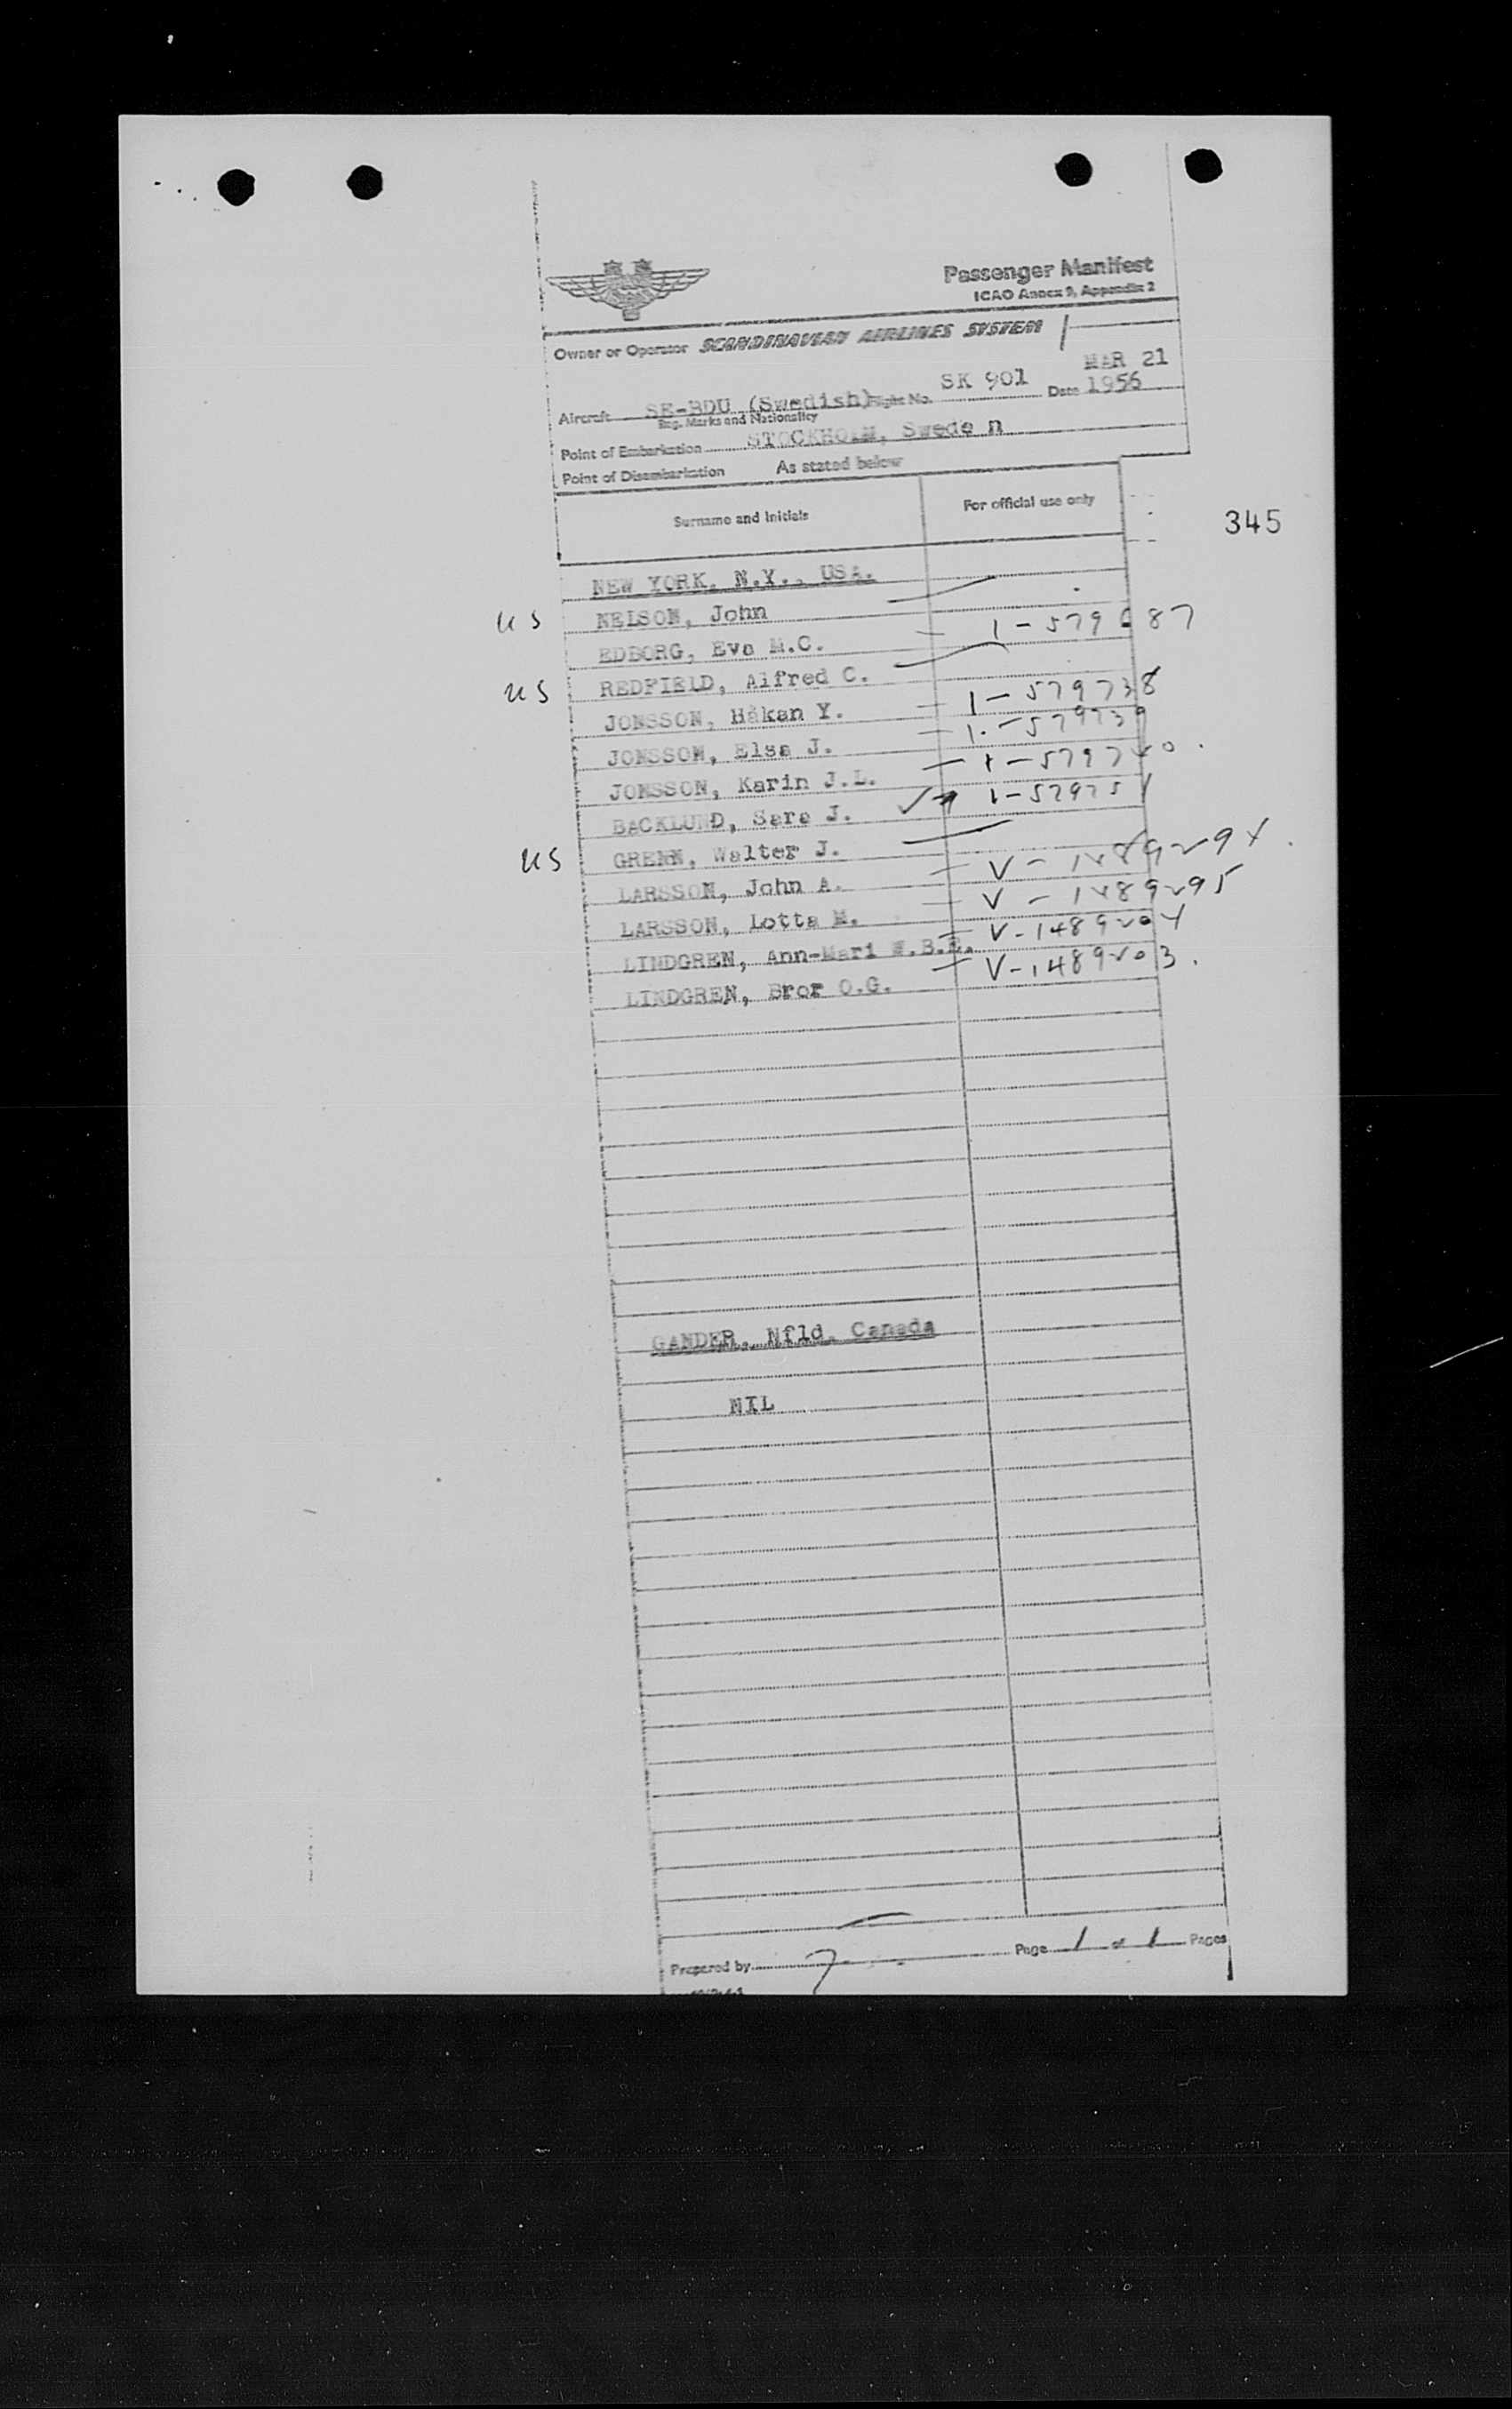 Passenger Manifest
ICAO Annex 9, Appendix 2
Owner or Operator SCANDINAVIAN AIRLINES SYSTEM
Aircraft SE-BDU (Swedish) Flight No. SK 901 Date MAR 21 1956
Reg. Marks and Nationality
Point of Embarkation STOCKHOLM, Swede n
Point of Disembarkation As stated below
Surname and Initials For official use only
345
NEW YORK, N.Y., USA.
US NELSON, John
EDBORG, Eva M.C. 1-579 87
US REDFIELD, Alfred C.
JONSSON, Håkan Y. 1-579738
JONSSON, Elsa J. 1-579739
JONSSON, Karin J.L. 1-579740
BACKLUND, Sara J. 1-579751
US GRENN, Walter J.
LARSSON, John A. V-1489294
LARSSON, Lotta M. V-1489295
LINDGREN, Ann-Mari W.B.E. V-1489204
LINDGREN, Bror O.G. V-1489203
GANDER, Nfld. Canada
NIL
Prepared by Page 1 of 1 Pages